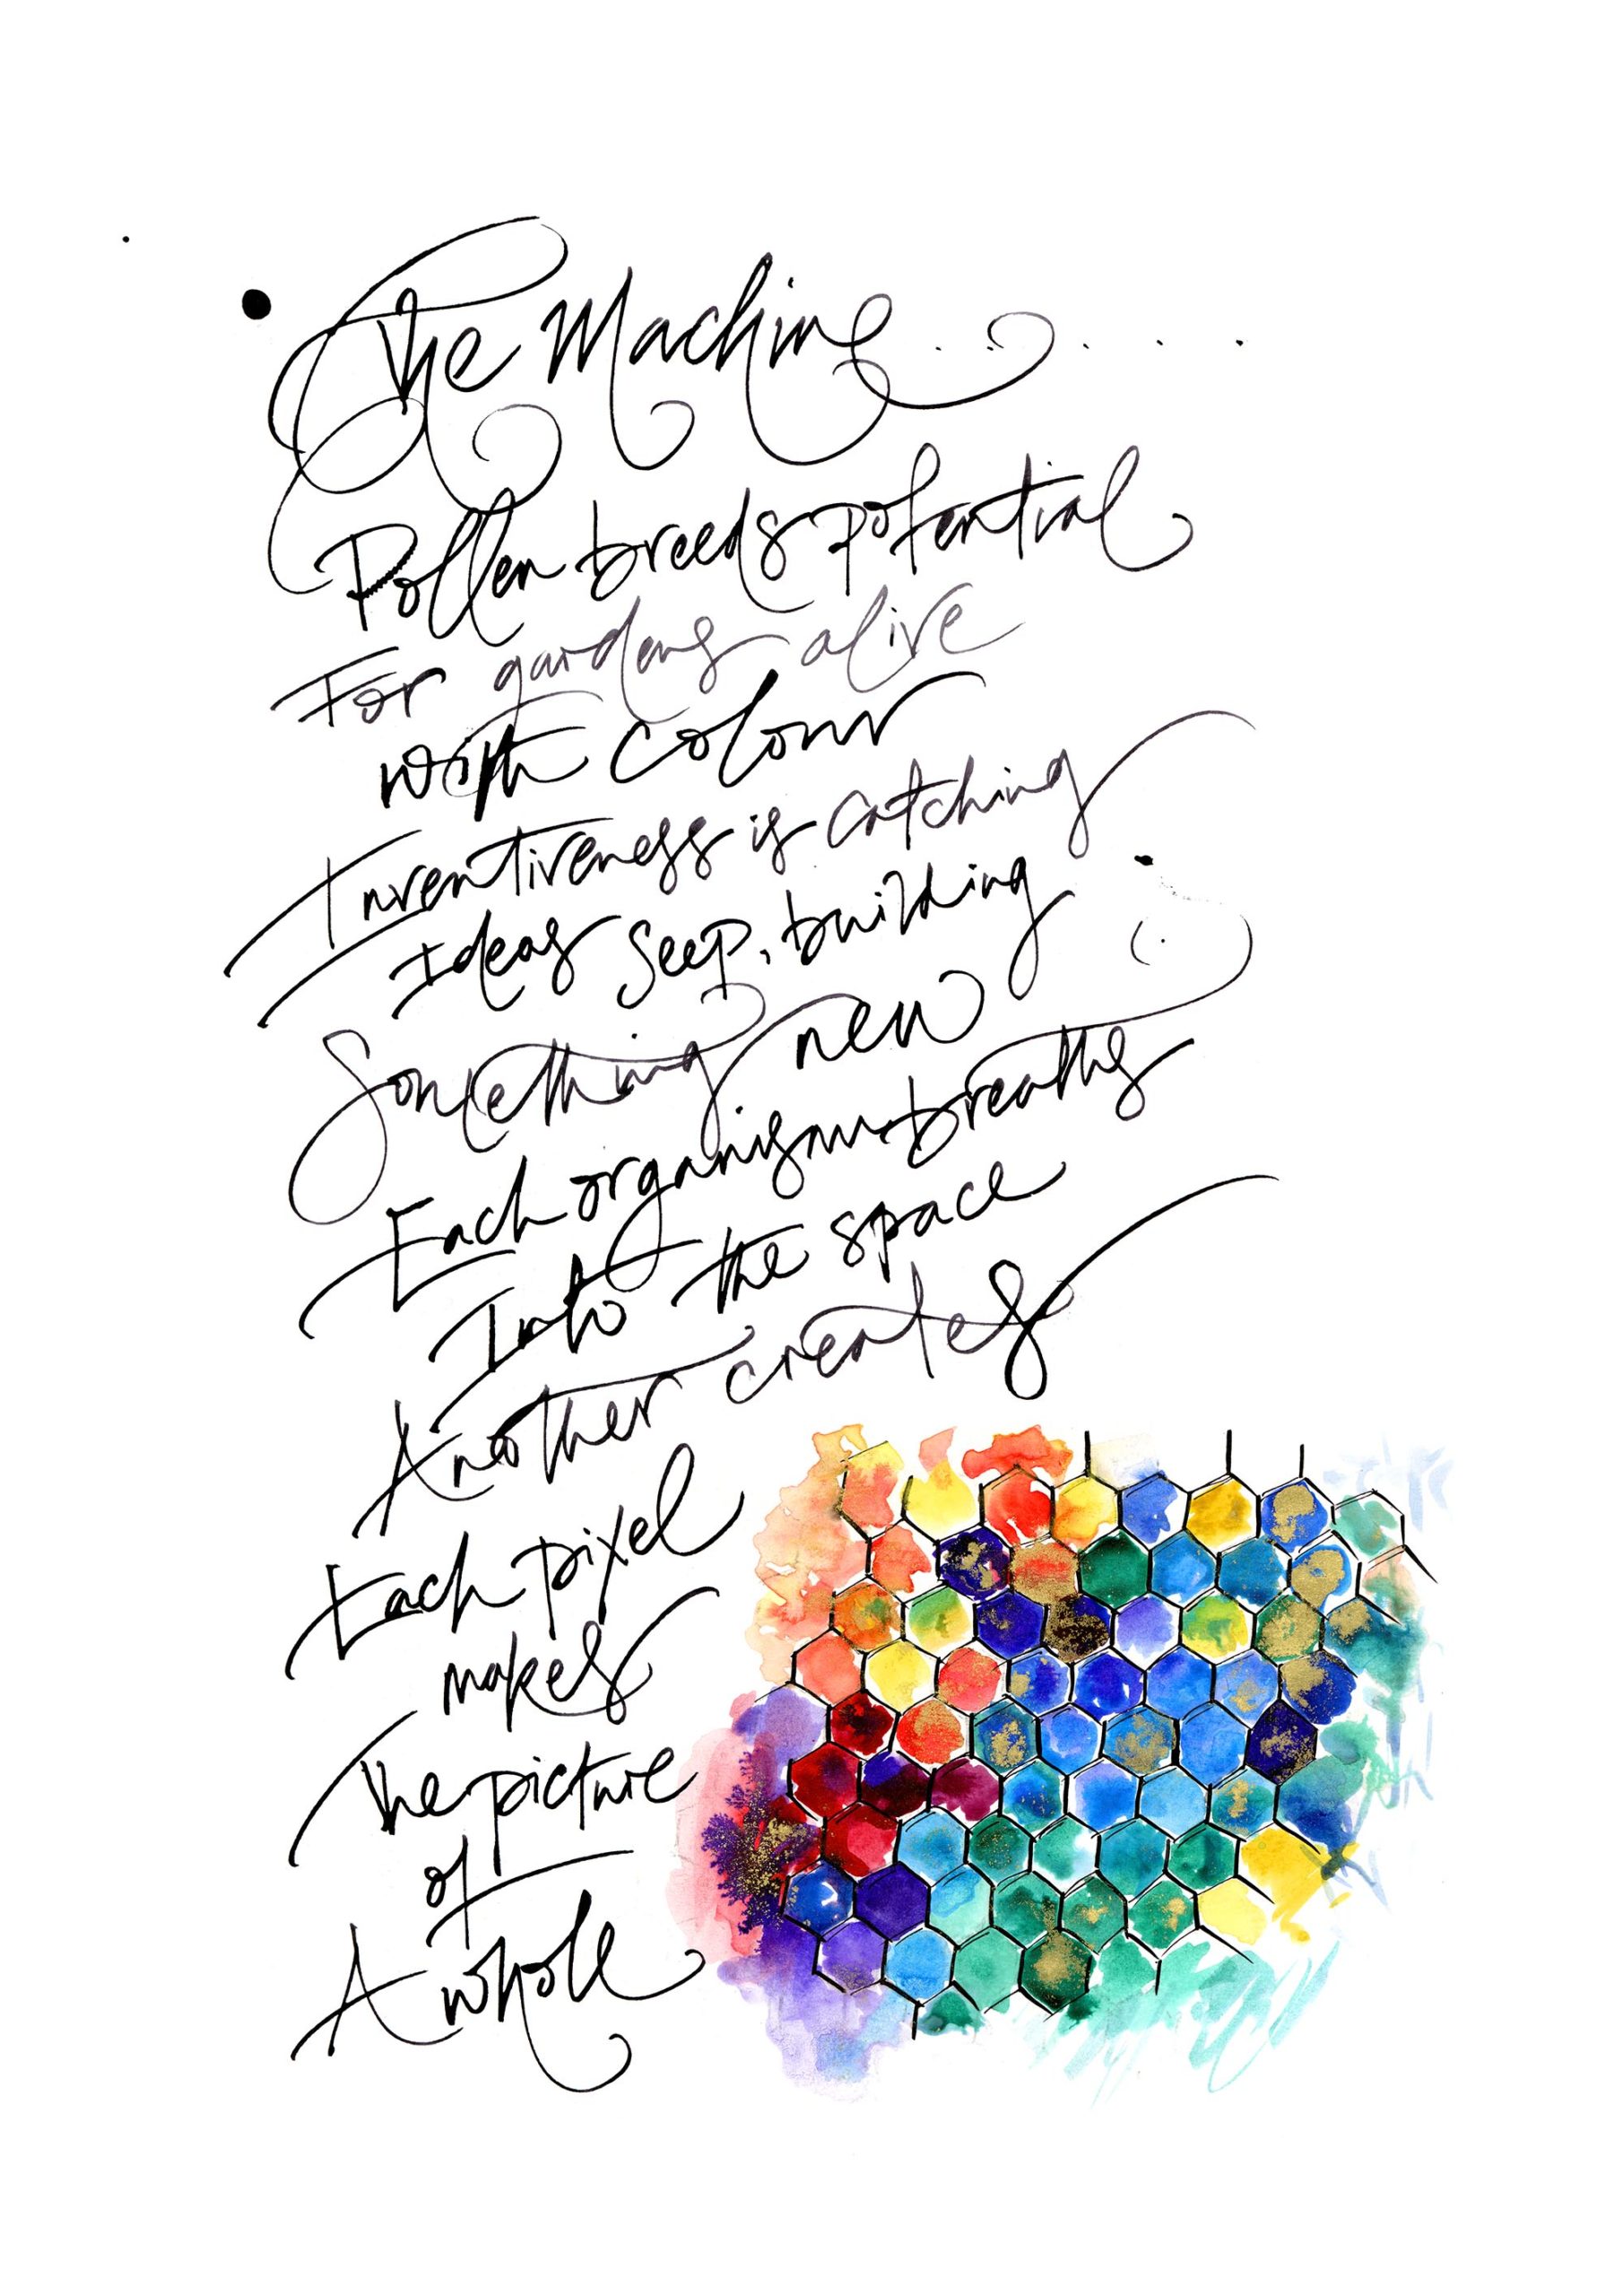 The Machine.......
Pollen breeds potential
For gardens alive
with colour
Inventiveness is catching
Ideas seep, building
Something new
Each organism breaths
Into the space
Another creates
Each pixel
makes
The picture
of
A whole